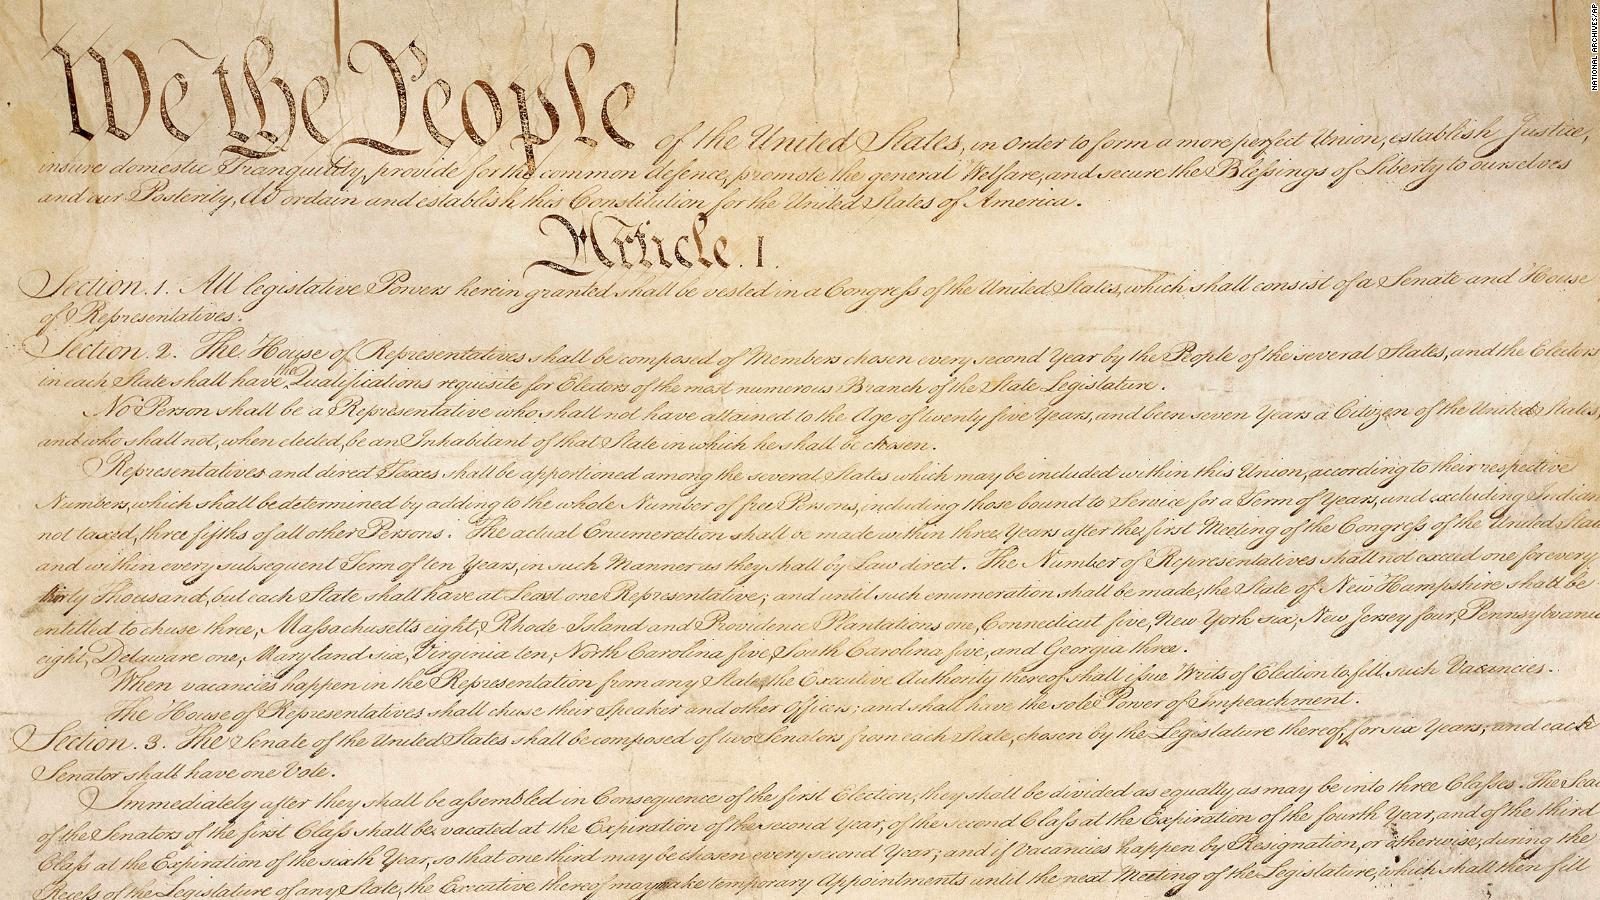 We the People of the United States, in Order to form a more perfect Union, establish Justice,
insure domestic Tranquility, provide for the common defence, promote the general Welfare, and secure the Blessings of Liberty to ourselves
and our Posterity, do ordain and establish this Constitution for the United States of America.
Article. I.
Section. 1. All legislative Powers herein granted shall be vested in a Congress of the United States, which shall consist of a Senate and House
of Representatives.
Section. 2. The House of Representatives shall be composed of Members chosen every second Year by the People of the several States, and the Electors
in each State shall have the Qualifications requisite for Electors of the most numerous Branch of the State Legislature.
No Person shall be a Representative who shall not have attained to the Age of twenty five Years, and been seven Years a Citizen of the United States,
and who shall not, when elected, be an Inhabitant of that State in which he shall be chosen.
Representatives and direct Taxes shall be apportioned among the several States which may be included within this Union, according to their respective
Numbers, which shall be determined by adding to the whole Number of free Persons, including those bound to Service for a Term of Years, and excluding Indian
not taxed, three fifths of all other Persons. The actual Enumeration shall be made within three Years after the first Meeting of the Congress of the United Stat
and within every subsequent Term of ten Years, in such Manner as they shall by Law direct. The Number of Representatives shall not exceed one for every
thirty Thousand, but each State shall have at Least one Representative; and until such enumeration shall be made, the State of New Hampshire shall be
entitled to chuse three, Massachusetts eight, Rhode-Island and Providence Plantations one, Connecticut five, New York six, New Jersey four, Pennsylvania
eight, Delaware one, Maryland six, Virginia ten, North Carolina five, South Carolina five, and Georgia three.
When vacancies happen in the Representation from any State, the Executive Authority thereof shall issue Writs of Election to fill such Vacancies.
The House of Representatives shall chuse their Speaker and other Officers; and shall have the sole Power of Impeachment.
Section. 3. The Senate of the United States shall be composed of two Senators from each State, chosen by the Legislature thereof, for six Years; and each
Senator shall have one Vote.
Immediately after they shall be assembled in Consequence of the first Election, they shall be divided as equally as may be into three Classes. The Seat
of the Senators of the first Class shall be vacated at the Expiration of the second Year, of the second Class at the Expiration of the fourth Year, and of the third
Class at the Expiration of the sixth Year, so that one third may be chosen every second Year; and if Vacancies happen by Resignation, or otherwise, during the
Recess of the Legislature of any State, the Executive thereof may make temporary Appointments until the next Meeting of the Legislature, which shall then fill
NATIONAL ARCHIVES/AP